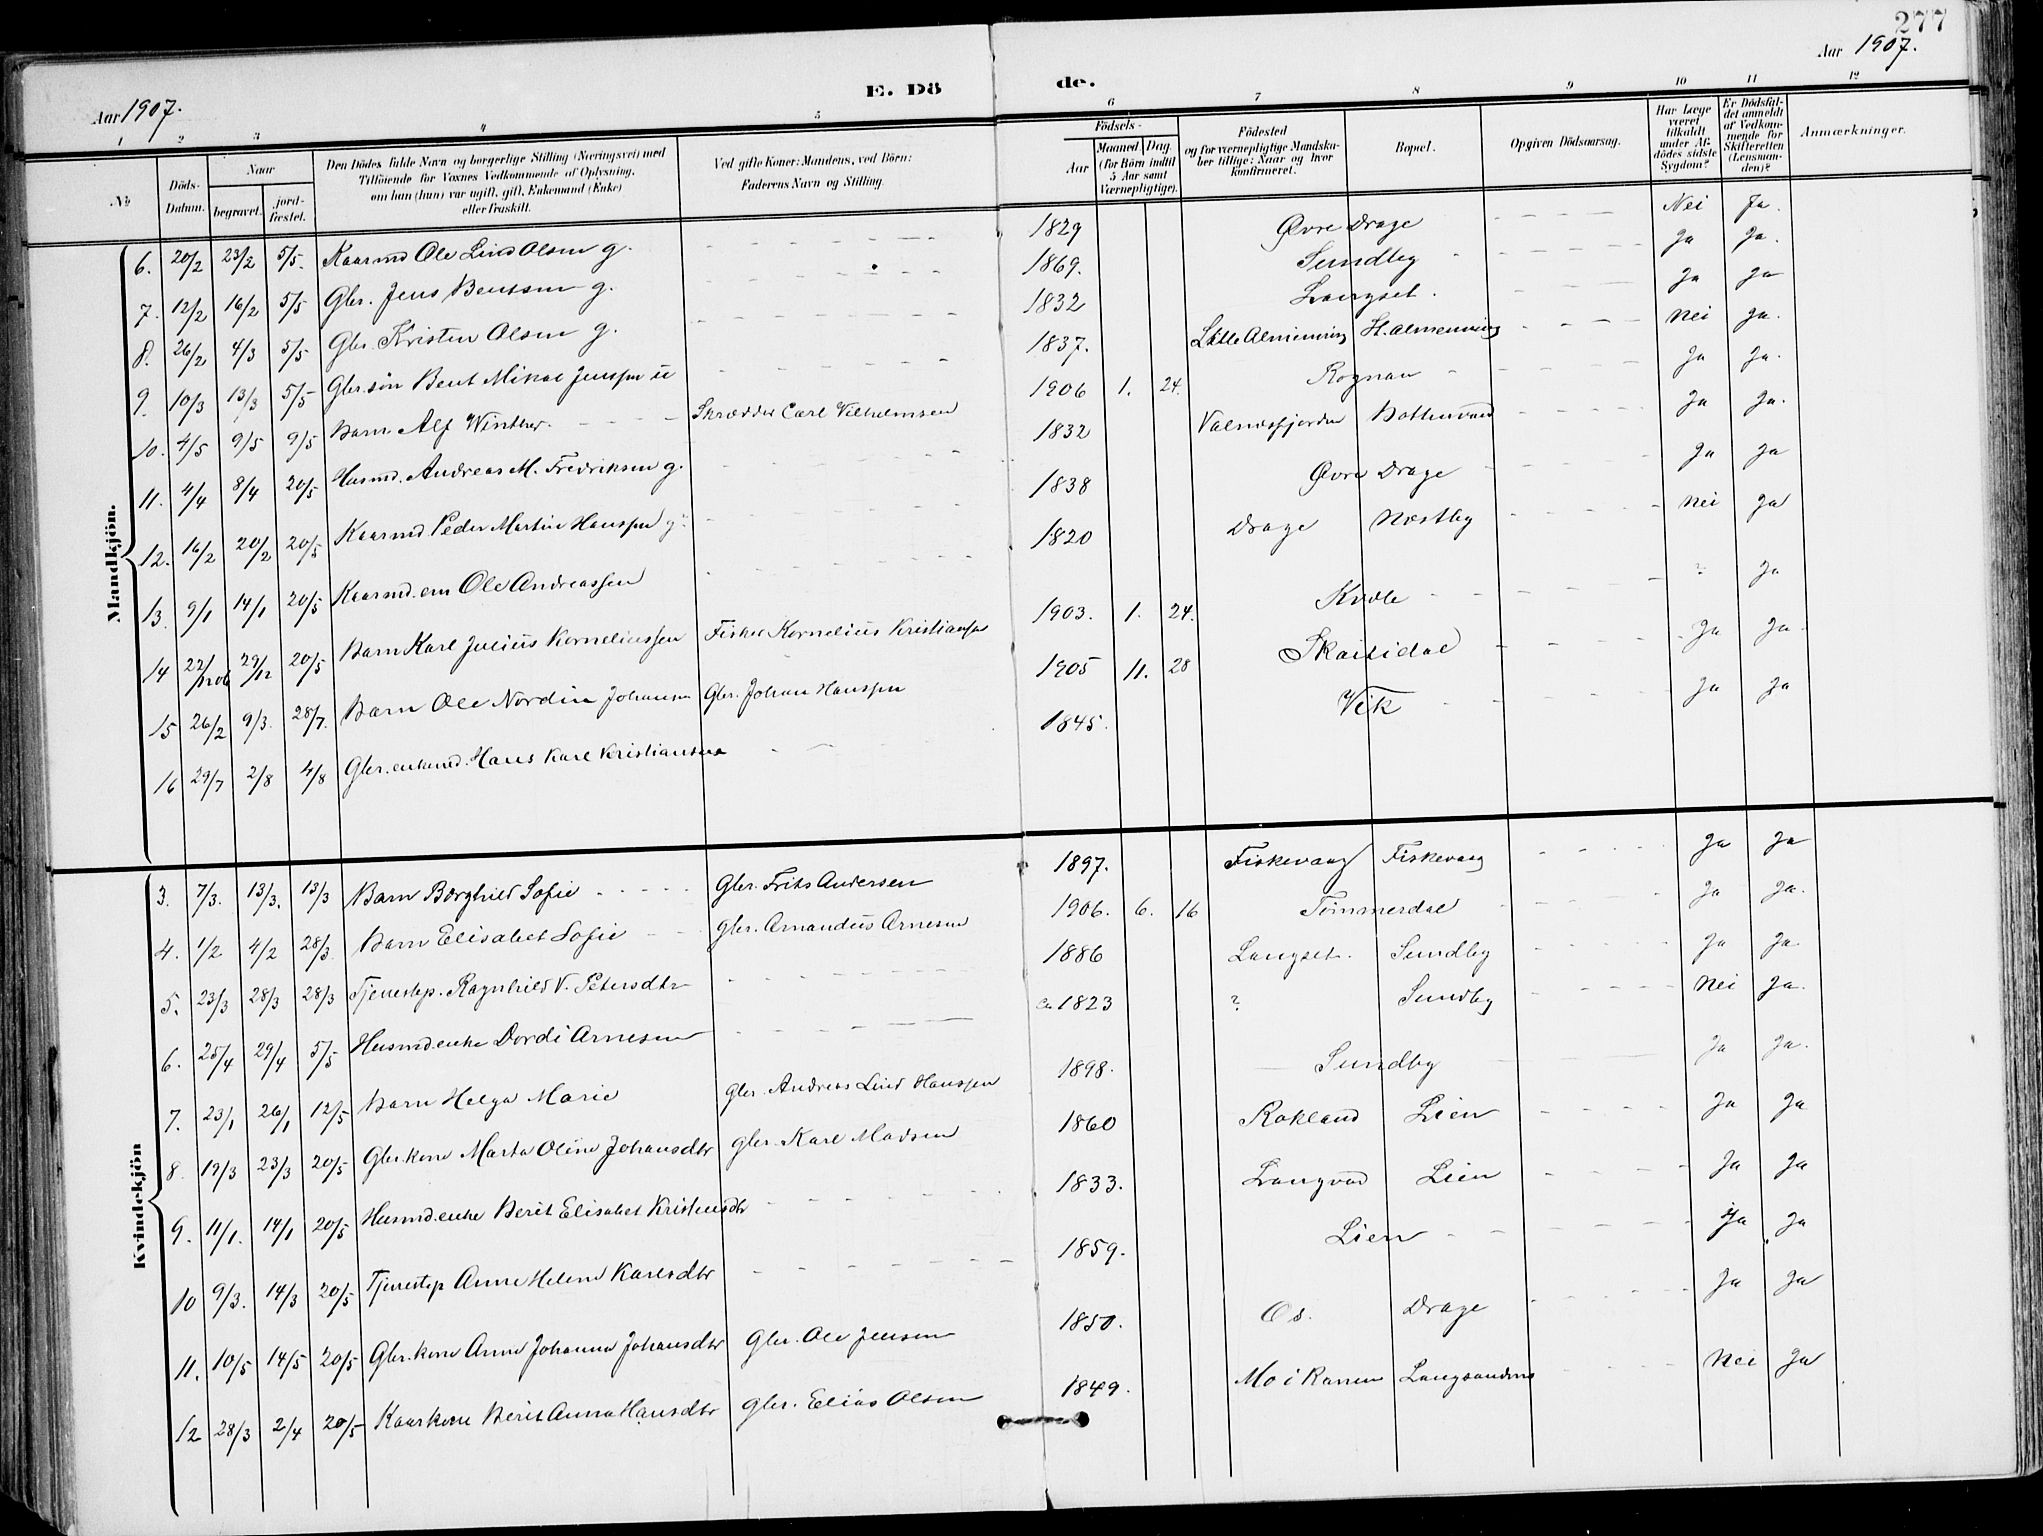 277
Aar 1907. E. Dö de. Aar 1907.
1 2 3 4 5 6 7 8 9 10 11 12
No
Döds-Datum.
Naar
begravet.
jord-fæstet.
Den Dödes fulde Navn og borgerlige Stilling (Næringsvei) med
Tilföiende for Voxnes Vedkommende af Oplysning,
om han (hun) var ugift, gift, Enkemand (Enke)
eller fraskilt.
Ved gifte Koner: Mandens, ved Börn:
Faderens Navn og Stilling.
Födsels-
Aar
Maaned Dag
(for Börn indtil
5 Aar samt
Værnepligtige).
Födested
og for værnepligtige Mandska-
ber tillige: Naar og hvor
konfirmeret.
Bopæl.
Opgiven Dödsaarsag.
Har Læge
været
tilkaldt
under Af-
dödes sidste
Sygdom?
Er Dödsfal-
det anmeldt
af Vedkom-
mende for
Skifteretten
(Lensman-
den)?
Anmærkninger.
Mandkjön.
6. 20/2 23/2 5/5. Kaarmd Ole Lind Olsen g. 1829 Øvre Drage Nei Ja.
7. 12/2 16/2 5/5 Gbr. Jens Bentsen g. 1869. Sundby Ja Ja.
8. 26/2 4/3 5/5 Gbr. Kristen Olsen g. 1832 Langset. Ja Ja
9. 10/3 13/3 5/5 Gbr.søn Bent Mikal Jenssen u 1837. Almenning St. Almenning Nei Ja.
10. 4/5 9/5 9/5 Barn Alf Winther. Skrædder Carl Vilhelmsen 1906 1. 24. Rognan Ja Ja.
11. 4/4 8/4 20/5 Husmd. Andreas M. Fredriksen g. 1832 Valnesfjorden Botnvand Ja Ja.
12. 16/2 20/2 20/5 Kaarmd Peder Martin Hanssen g. 1838 Øvre Drage Ja Ja
13. 9/1 14/1 20/5 Kaarmd. em Ole Andreassen 1820 Drage Nestby Nei Ja
14 22/12 06 29/12 20/5 Barn Karl Julius Korneliussen Fisker Kornelius Kristiansen 1903. 1. 24. Kvæle ? Ja
15 26/2 9/3. 28/7. Barn Ole Nordin Johansen Gbr. Johan Hanssen 1905 11. 28 Skaitidal Ja Ja.
16 29/7 2/8 4/8 Gbr. enkemd. Hans Karl Kristiansen 1845. Vik Ja Ja
Kvindekjön
3. 7/3. 13/3. 13/3 Barn Borghild Sofie Gbr. Frits Andersen 1897. Fiskevaag Fiskevaag Ja Ja
4. 1/2 4/2 28/3. Barn Elisabet Sofie Gbr. Amandus Arnesen 1906. 6. 16 Tømmerdal Ja Ja.
5. 23/3 28/3 28/3 Tjenestep. Ragnhild V. Petersdtr 1886 Langset. Sundby Ja Ja
6. 25/4 29/4 5/5 Husmd.enke Dordi Arnesen ca 1823 ? Sundby Nei Ja.
7. 23/1 26/1 12/5 Barn Helga Marie Gbr. Andreas Lind Hanssen 1898. Sundby Ja Ja.
8. 19/3 23/3 20/5 Gbr.kone Marta Oline Johansdtr Gbr. Karl Madsen 1860 Rokland Lien Ja Ja
9. 11/1. 14/1 20/5 Husmd.enke Berit Elisabet Kristensdtr 1833. Langvad Lien Ja Ja
10 9/3. 14/3 20/5 Tjenestep Anne Helene Karlsdtr 1859. Lien Ja Ja
11. 10/5 14/5 20/5 Gbr.kone Anne Johanna Johansdtr Gbr. Ole Jensen 1850. Os. Drage Ja Ja
12 28/3 2/4 20/5 Kaarkone Berit Anna Hansdtr Gbr. Elias Olsen 1849. Mo i Ranen Langsanden Nei Ja